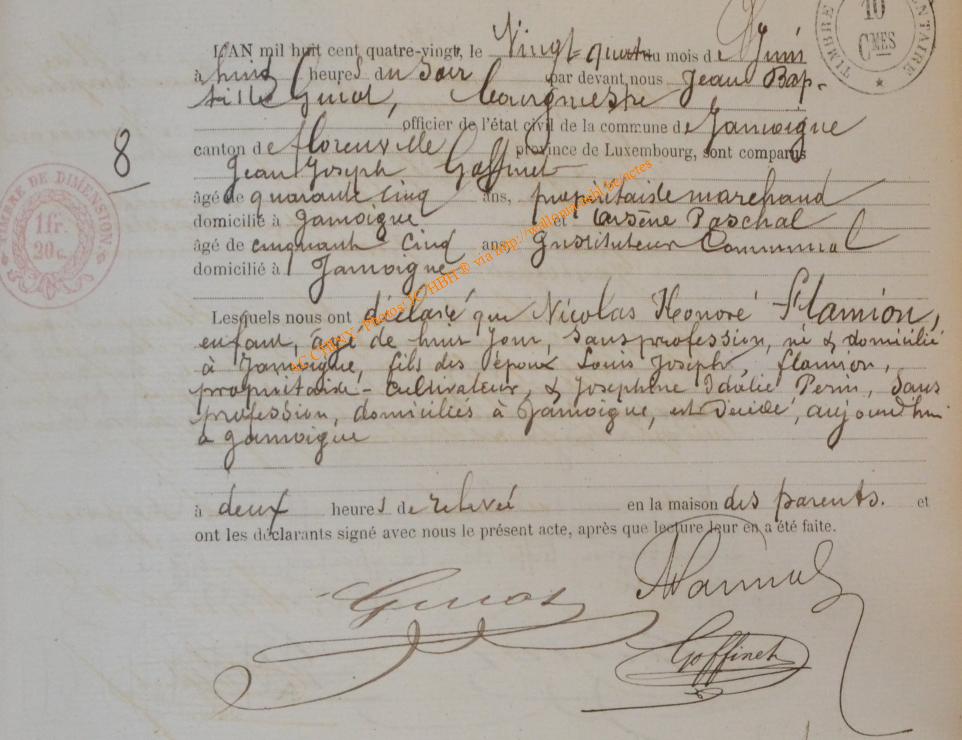 TIMBRE
10
CMES
L'AN mil huit cent quatre-vingt, le Vingt-quatre du mois de Juin
à huit heures du soir par devant nous Jean Bap-
tiste Guiot, Bourgmestre
officier de l'état civil de la commune de Jamoigne
8
canton de florenville province de Luxembourg, sont comparus
Jean Joseph Goffinet
TIMBRE DE DIMENSION
1 fr.
20 c.
âgé de quarante cinq ans, propriétaire marchand
domicilié à Jamoigne et Arsène Paschal
âgé de cinquante cinq ans Instituteur Communal
domicilié à Jamoigne
Lesquels nous ont déclaré que Nicolas Honoré Flamion,
enfant, âgé de huit Jour, sans profession, né & domicilié
à Jamoigne, fils des époux Louis Joseph, flamion,
propriétaire-cultivateur, & Josephine Idalie Perin, sans
profession, domiciliés à Jamoigne, est décédé, aujourd'hui
à Jamoigne
à deux heures de relevée en la maison des parents. et
ont les déclarants signé avec nous le présent acte, après que lecture leur en a été faite.
Guiot
Goffinet